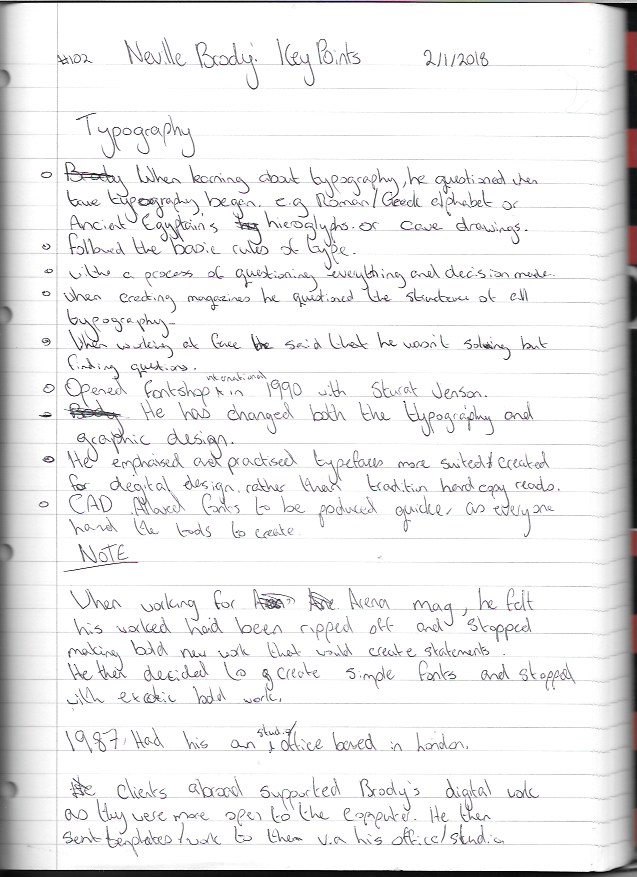 #102 Neville Brody: Key Points 2/1/2018
Typography
When learning about typography, he questioned when
typography began. e.g Roman/Greek alphabet or
Ancient Egyptain's hieroglyphs or cave drawings.
followed the basic rules of type.
a process of questioning everything and decision made.
when creating magazines he questioned the structure of all
typography-
When working at face he said that he wasn't solving but
finding questions.
Opened fontshop international in 1990 with Sturat Jenson.
Brody He has changed both the typography and
graphic design.
He emphaised and practised typefaces more suited/created
for degital design rather than tradition hard copy reads.
CAD Allowed fonts to be produced quicker as everyone
hand the tools to create.
NOTE
When working for Arena mag, he felt
his worked had been ripped off and stopped
making bold new work that would create statements.
He then decided to create simple fonts and stopped
with exotic bold work.
1987, Had his own studio/office based in London.
Clients abroad supported Brody's digital work
as they were more open to the computer. He then
sent templates/work to them via his office/studio